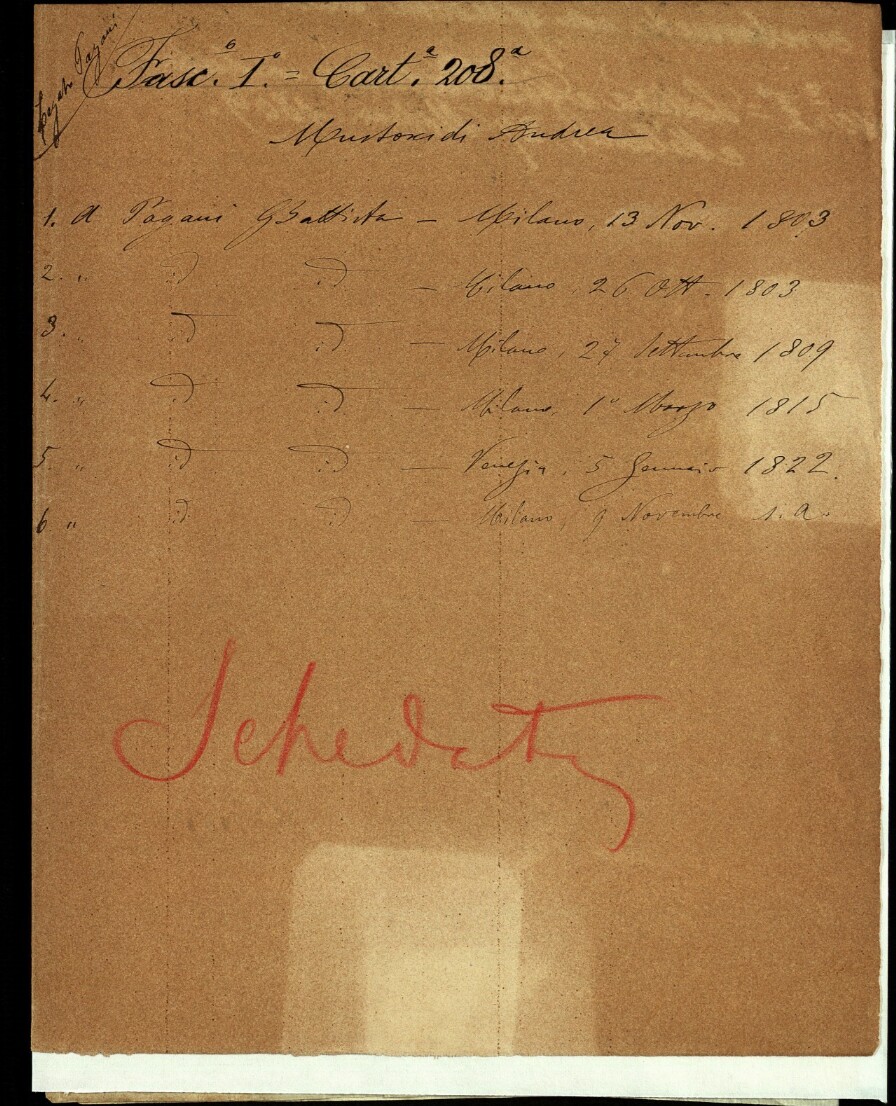 Legato Pagani
Fasc.º I.º = Cart.ª 208.ª
Mustoxidi Andrea
1. A Pagani GBattista — Milano, 13 Nov. 1803
2. " id id — Milano, 26 Ott. 1803
3. " id id — Milano, 27 Settembre 1809
4. " id id — Milano, 1º Marzo 1815
5. " id id — Venezia, 5 Gennaio 1822.
6 " id id — Milano, 9 Novembre s.a.
Schedato